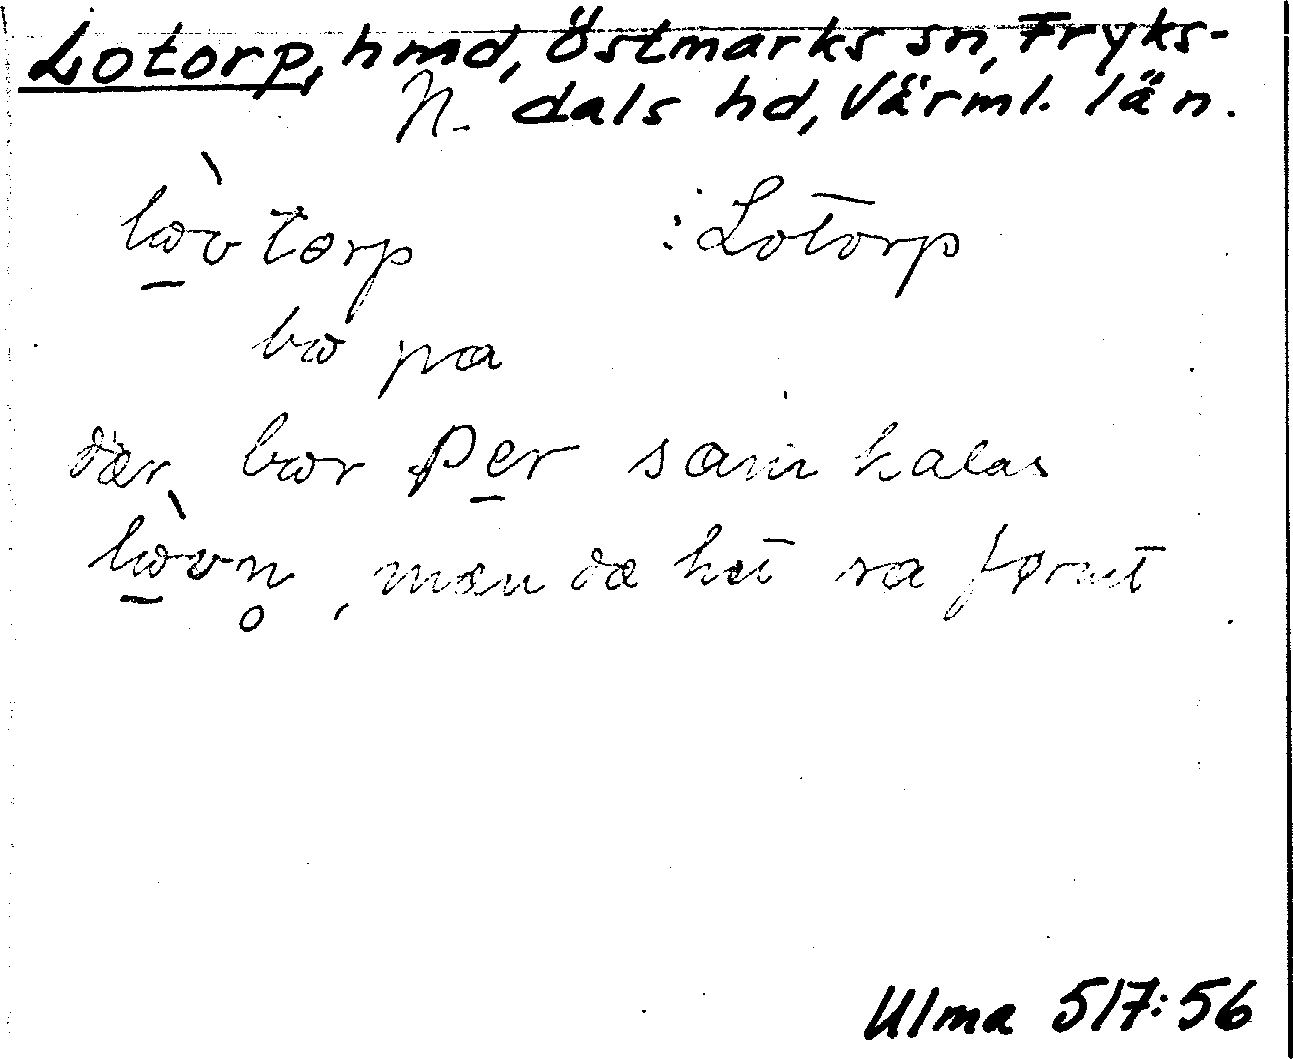 Lotorp, hmd, Östmarks sn, Fryks-
N. dals hd, Värml. län.
lòvtorp : Lotorp
bo pa
dær bor Per sam kalas
lòvn̥, mæn dæ het sa förut
Ulma 517:56